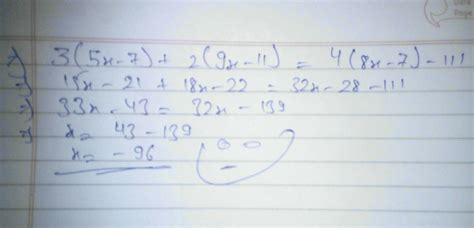 3(5x-7) + 2(9x-11) = 4(8x-7)-111
15x - 21 + 18x - 22 = 32x - 28 - 111
33x - 43 = 32x - 139
x = 43 - 139
x = - 96